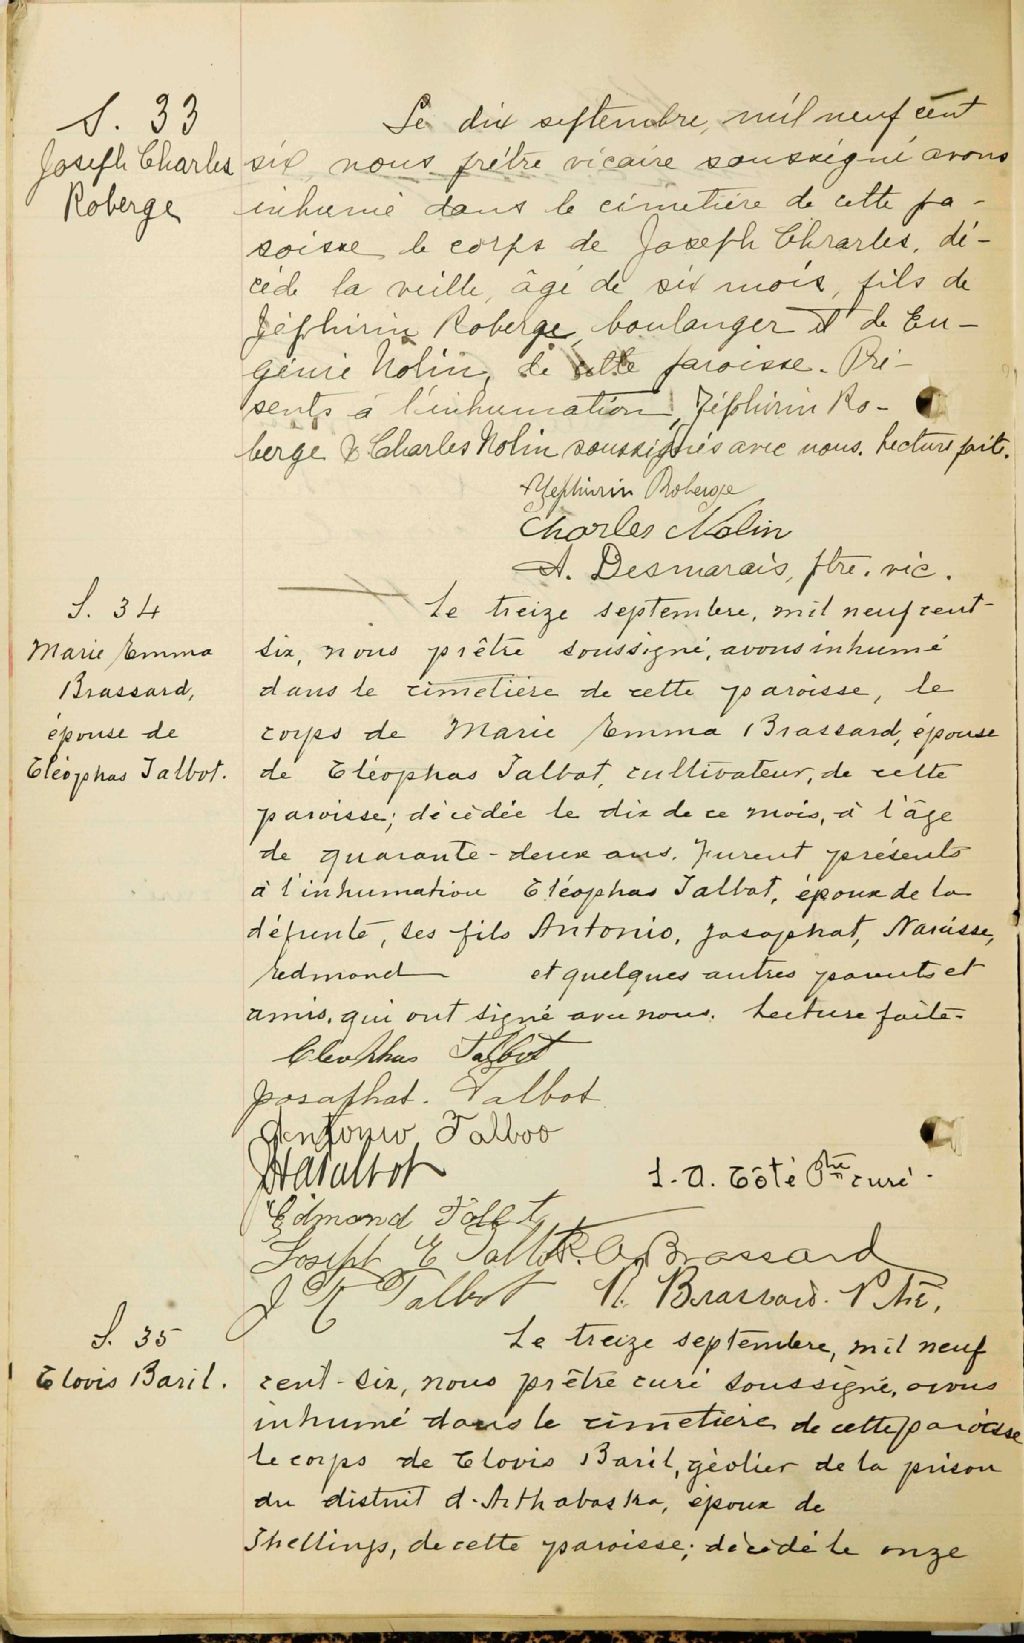 S. 33
Joseph Charles
Roberge
Le dix septembre, mil neuf cent
six nous prêtre vicaire soussigné avons
inhumé dans le cimetière de cette pa-
roisse le corps de Joseph Chrarles, dé-
cédé la veille, âgé de six mois, fils de
Zéphirin Roberge, boulanger et de Eu-
génie Nolin, de cette paroisse. Pré-
sents à l'inhumation, Zéphirin Ro-
berge & Charles Nolin soussignés avec nous. Lecture faite.
Zephirin Roberge
Charles Nolin
A. Desmarais, ptre. vic.
S. 34
Marie Emma
Brassard,
épouse de
Cléophas Talbot.
Le treize septembre, mil neuf cent-
six, nous prêtre soussigné, avons inhumé
dans le cimetière de cette paroisse, le
corps de Marie Emma Brassard, épouse
de Cléophas Talbot, cultivateur, de cette
paroisse; décédée le dix de ce mois, à l'âge
de quarante-deux ans. Furent présents
à l'inhumation Cléophas Talbot, époux de la
défunte, ses fils Antonio, Josaphat, Narcisse,
Edmond et quelques autres parents et
amis, qui ont signé avec nous. Lecture faite.
Cleophas Talbot
Josaphat. Talbot
Antonio Talbot
Talbot
L. A. Côté Ptre curé.
Edmond Talbot
Joseph E Talbot R. A. Brassard
J N Talbot N. Brassard. Ptre,
S. 35
Clovis Baril.
Le treize septembre, mil neuf
cent-six, nous prêtre curé soussigné, avons
inhumé dans le cimetière de cette paroisse
le corps de Clovis Baril, géolier de la prison
du district d'Arthabaska, époux de
Shellings, de cette paroisse; décédé le onze